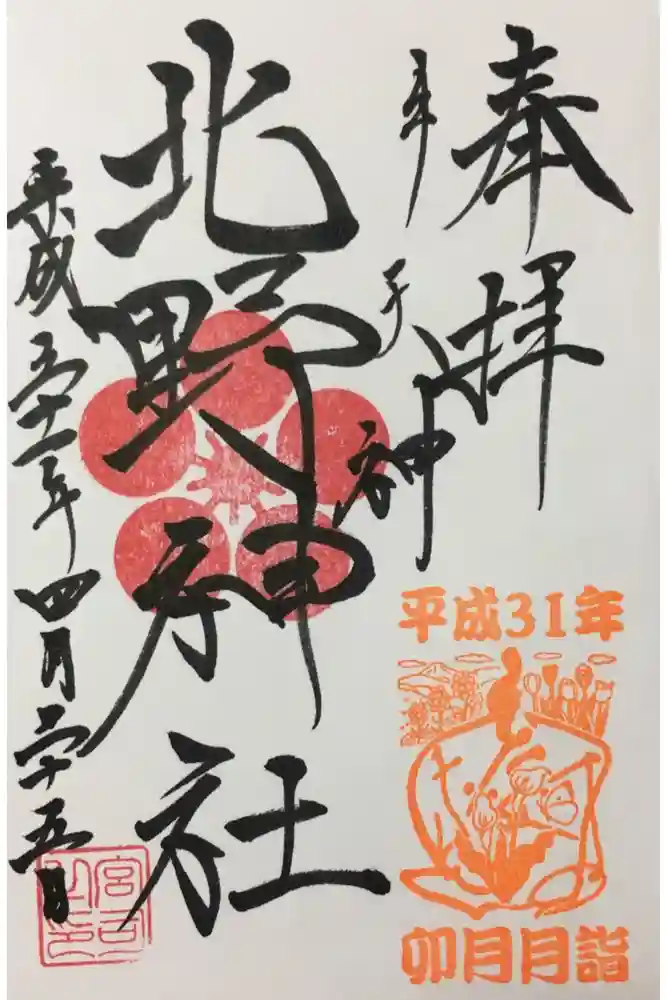 奉拝
牛天神
北野神社
平成三十一年四月二十五日
宮司之印
平成31年
卯月月詣